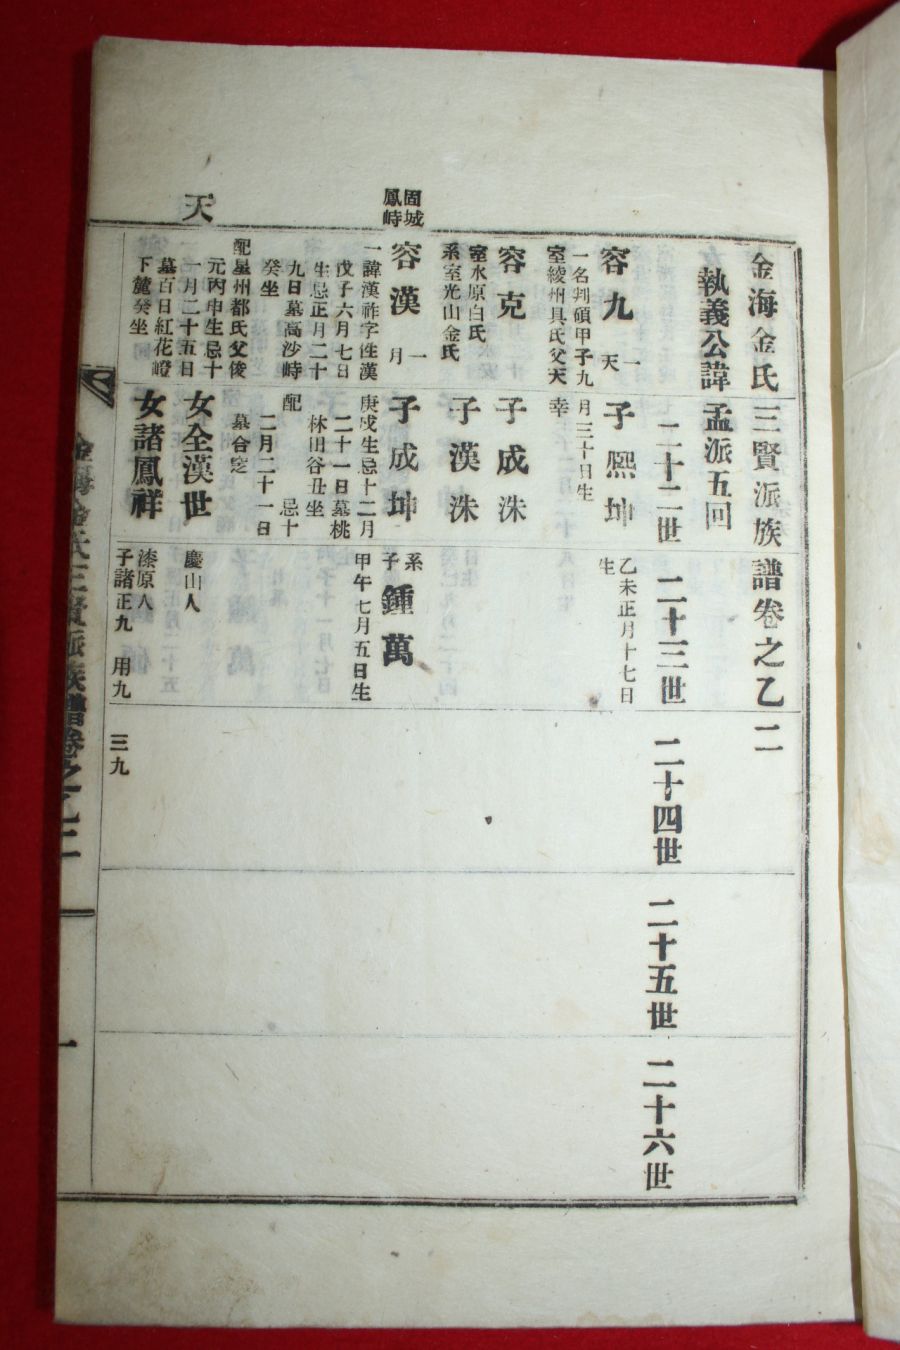 金海金氏三賢派族譜卷之乙二
執義公諱孟派五回
二十二世
二十三世
二十四世
二十五世
二十六世
容九
一天
一名判碩甲子九
室綾州具氏父天
子熙坤
月三十日生
幸
乙未正月十七日
生
容克
室水原白氏
系室光山金氏
子成洙
子漢洙
固城
鳳峙
容漢
一月
一諱漢祚字性漢
戊子六月七日
生忌正月二十
九日墓高沙峙
癸坐
配星州都氏父俊
元丙申生忌十
一月二十五日
墓百日紅花嶝
下麓癸坐
子成坤
庚戌生忌十二月
二十一日墓桃
林田谷丑坐
配 忌十
二月二十一日
墓合窆
系
子鍾萬
甲午七月五日生
天
女全漢世
慶山人
女諸鳳祥
漆原人
子諸正九 用九
三九
金海金氏三賢派族譜卷之乙二
一